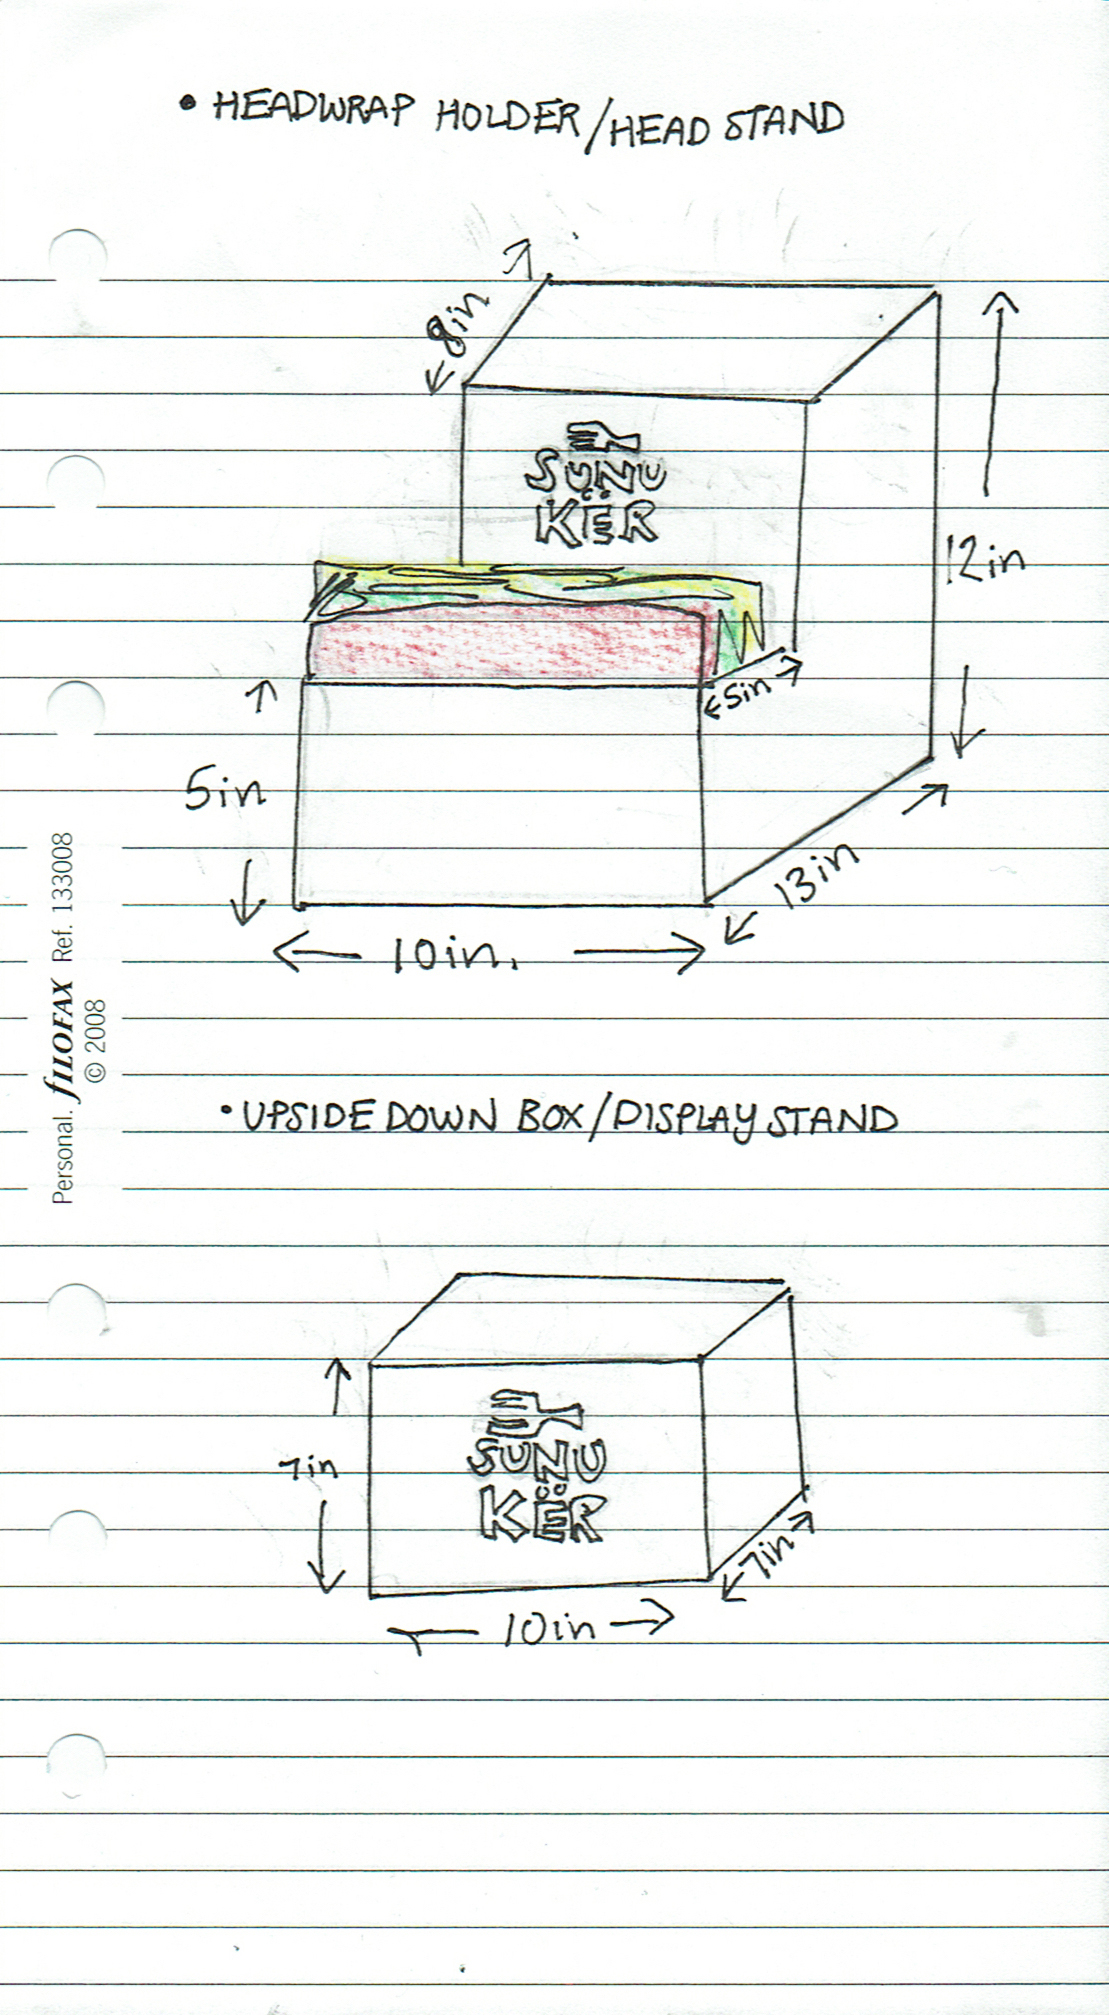 • HEADWRAP HOLDER/HEAD STAND
8in
SUNU
KËR
12in
5in
5in
13in
10in.
• UPSIDE DOWN BOX/DISPLAY STAND
SUNU
KËR
7in
7in
10in
Personal. fILOFAX Ref. 133008
© 2008